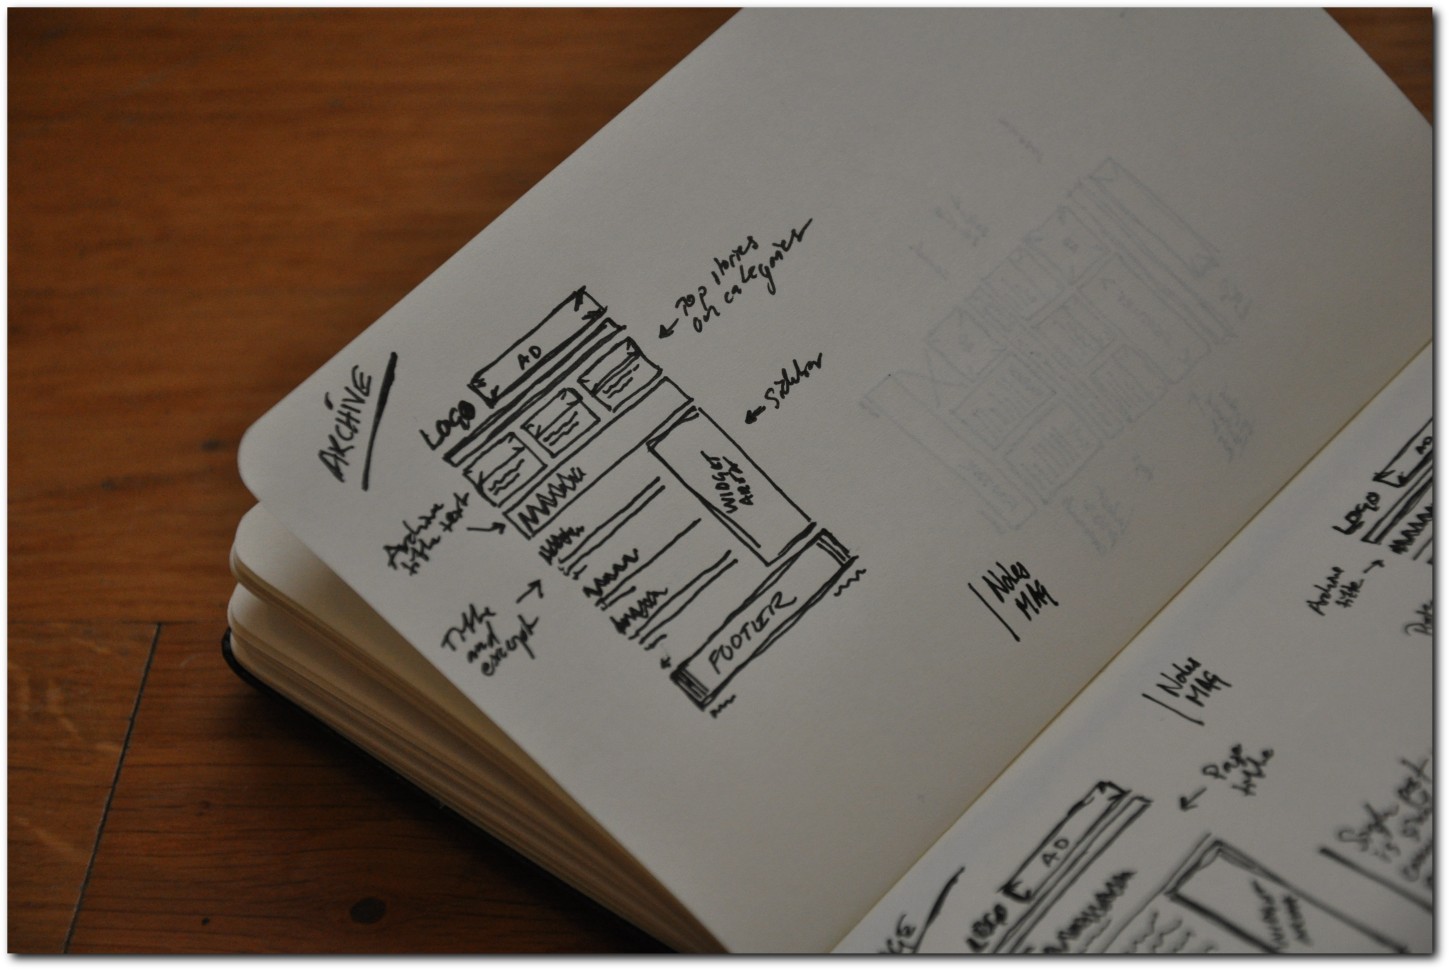 ARCHIVE
LOGO
AD
← Top stories
or categories
← Sidebar
WIDGET
AREA
Archive
title text →
Title
and
excerpt →
FOOTER
Notes
MAG
LOGO
AD
Archive
title →
Notes
MAG
← Page
title
LOGO
AD
Single
is